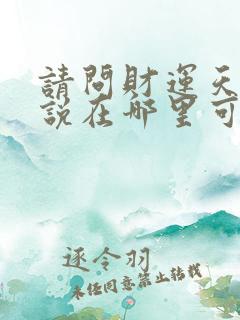 請問財運天
說在哪里可
逐令羽
未经同意禁止转载